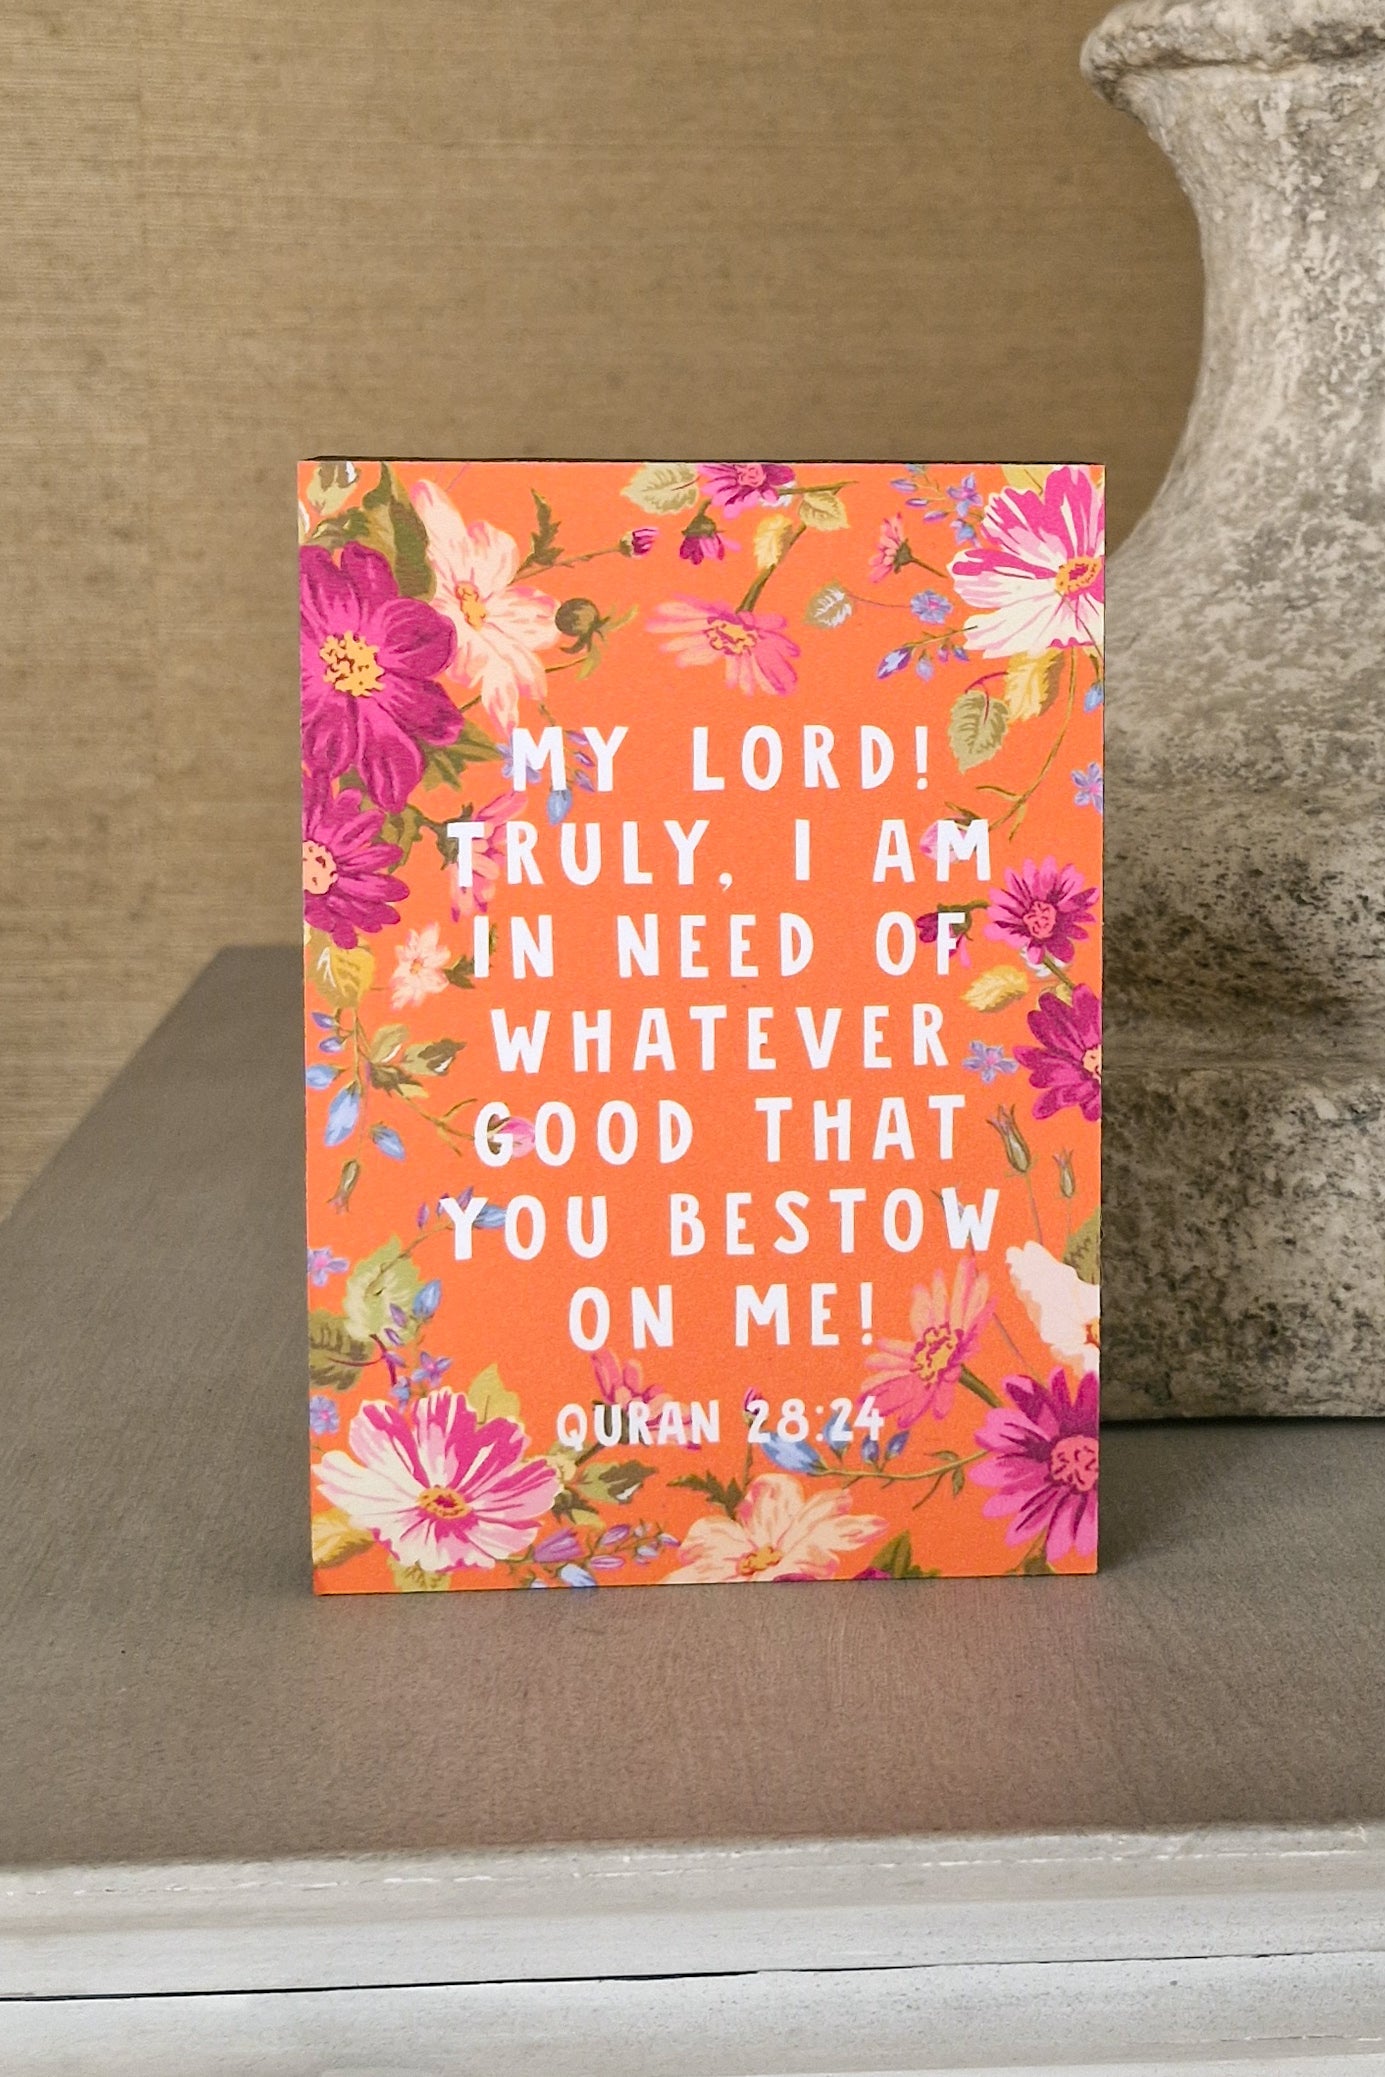 MY LORD!
TRULY, I AM
IN NEED OF
WHATEVER
GOOD THAT
YOU BESTOW
ON ME!
QURAN 28:24